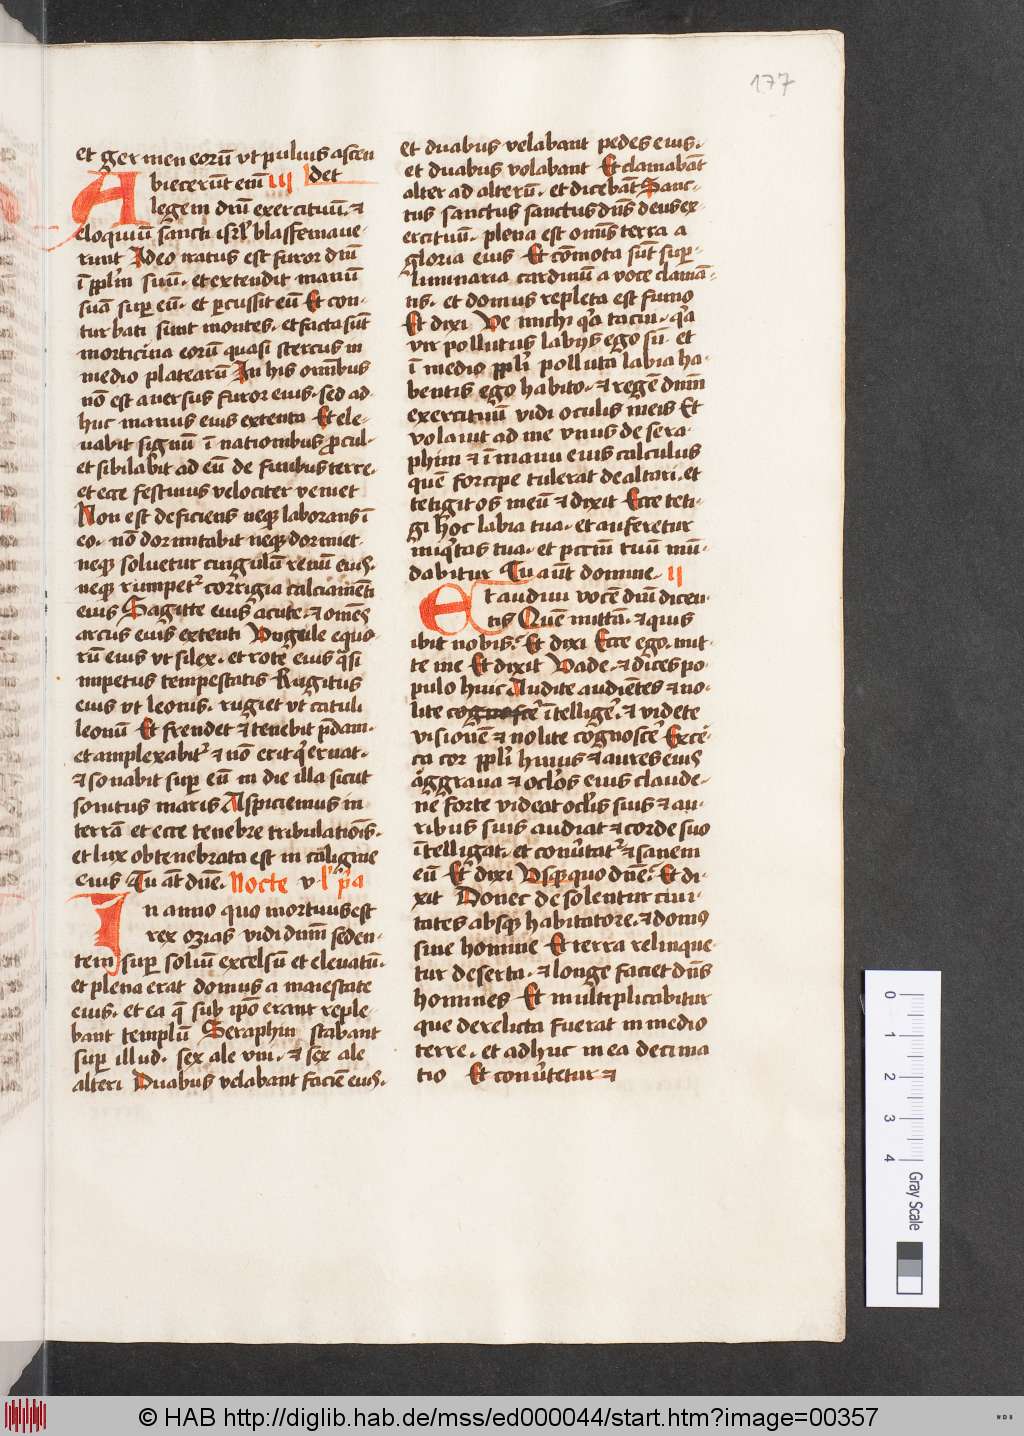 177
et germen eorū vt puluis ascen
det
Abiecerūt enī III
legem dnī exercituū. et
eloquiū sancti isrl' blasfemaue-
runt Ideo iratus est furor dnī
ī pplm suū. et extendit manū
suā sup eū. et percussit eū Et con-
turbati sunt montes. et facta sūt
morticina eorū quasi stercus in
medio platearū In his omībus
nō est auersus furor eius. sed ad
huc manus eius extenta Et ele-
uabit signū ī nationibus procul-
et sibilabit ad eū de finibus terre.
et ecce festinus velociter veniet
Non est deficiens neque laborans ī
eo. nō dormitabit neque dormiet.
neque soluetur cingulū renū eius.
neque rumpet' corrigia calciamēti
eius Sagitte eius acute. et omēs
arcus eius extenti Vngule equo-
rū eius vt silex. et rote eius qasi
impetus tempestatis Rugitus
eius vt leonis. rugiet vt catuli
leonū Et frendet et tenebit pdam.
et amplexabit' et nō erit q' eruat.
et sonabit sup eū in die illa sicut
sonitus maris Aspiciemus in
terrā et ecce tenebre tribulationis.
et lux obtenebrata est in caligine
eius Tu aūt dnē. Nocte v l' p'a
In anno quo mortuus est
rex ozias vidi dnm seden-
tem sup soliū excelsū et eleuatū.
et plena erat domus a maiestate
eius. et ea q̄ sub ipō erant reple-
bant templū Seraphin stabant
sup illud. sex ale vni. et sex ale
alteri Duabus velabant faciē eius.
et duabus velabant pedes eius.
et duabus volabant Et clamabāt
alter ad alterū. et dicebāt Sanc-
tus sanctus sanctus dns deus ex-
ercituū. plena est omīs terra a
gloria eius Et cōmota sūt sup
liminaria cardinū a voce claman-
tis. et domus repleta est fumo
Et dixi Ve michi qa tacui. qa
vir pollutus labijs ego sū. et
ī medio ppli polluta labia ha-
bentis ego habito. et regē dnm
exercituū vidi oculis meis Et
volauit ad me vnus de sera-
phim et ī manu eius calculus
quē forcipe tulerat de altari. et
tetigit os meū et dixit Ecce teti-
gi hoc labia tua. et auferetur
iniq'tas tua. et pctm tuū mū-
dabitur Tu aūt domine. II
Et audiui vocē dnī dicen-
tis Quē mittā. et quis
ibit nobis. Et dixi Ecce ego. mit-
te me Et dixit Vade. et dices po
pulo huic Audite audiētes et no-
lite ītelligē. et videte
visionē et nolite cognoscē Exce-
ca cor ppli huius et aures eius
aggraua et oclos eius claude.
ne forte videat oclis suis et au-
ribus suis audiat et corde suo
ītelligat. et conūtat' et sanem
eū Et dixi Vsquequo dnē. Et di-
xit Donec desolentur ciui-
tates absque habitatore. et domus
sine homine Et terra relinque-
tur deserta. et longe faciet dns
homines Et multiplicabitur
que derelicta fuerat in medio
terre. et adhuc in ea decima
tio Et conūtetur et
0 1 2 3 4 Gray Scale
© HAB http://diglib.hab.de/mss/ed000044/start.htm?image=00357